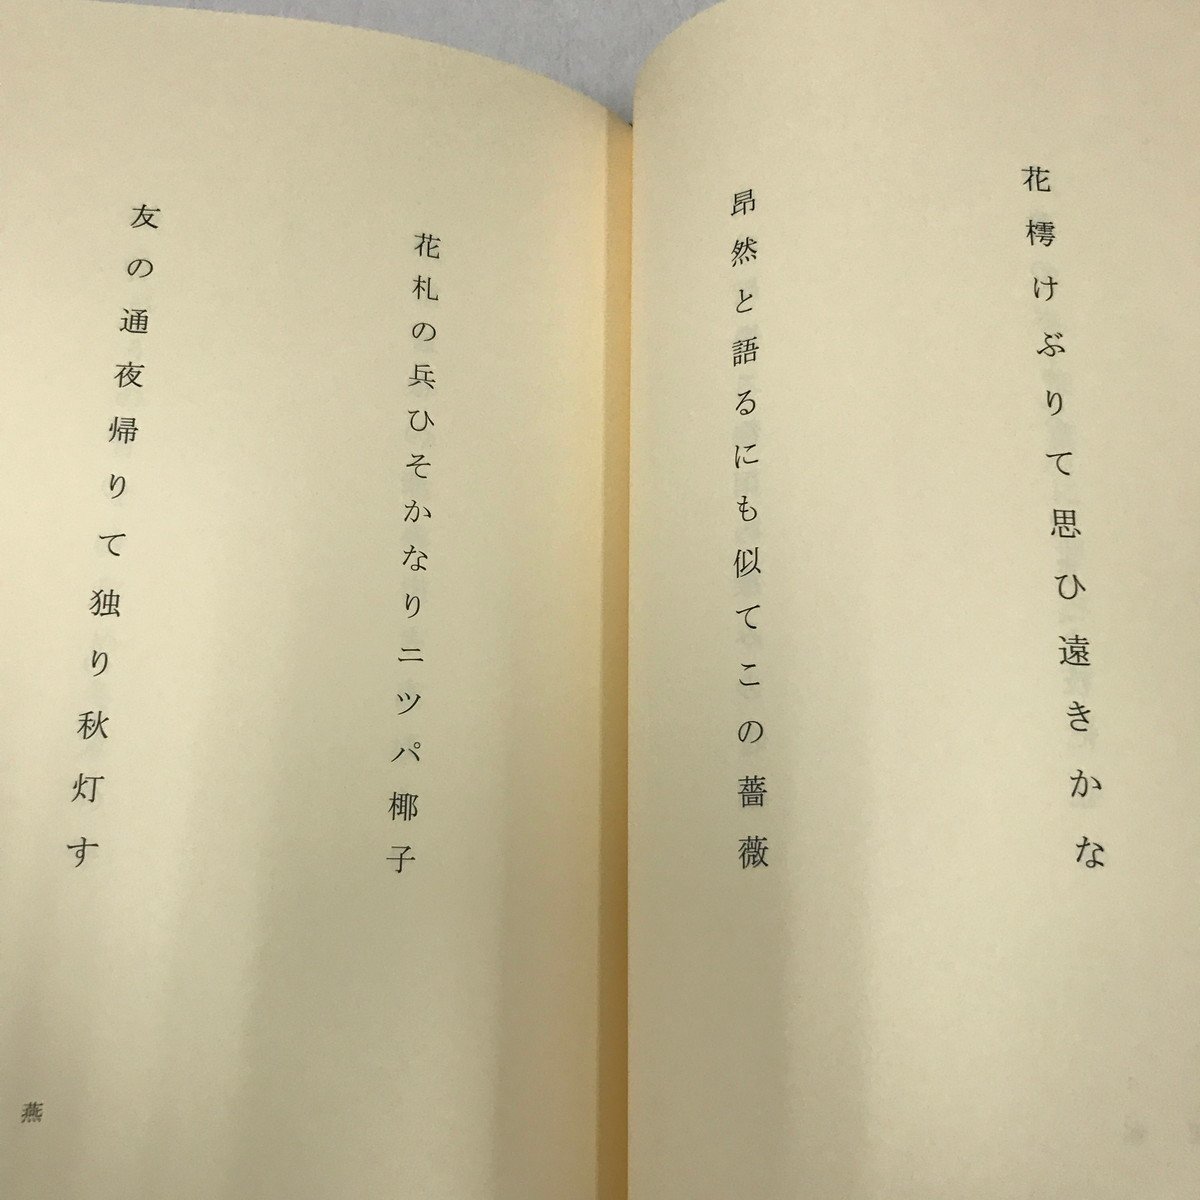 花樗けぶりて思ひ遠きかな
昂然と語るにも似てこの薔薇
花札の兵ひそかなりニツパ椰子
友の通夜帰りて独り秋灯す
燕